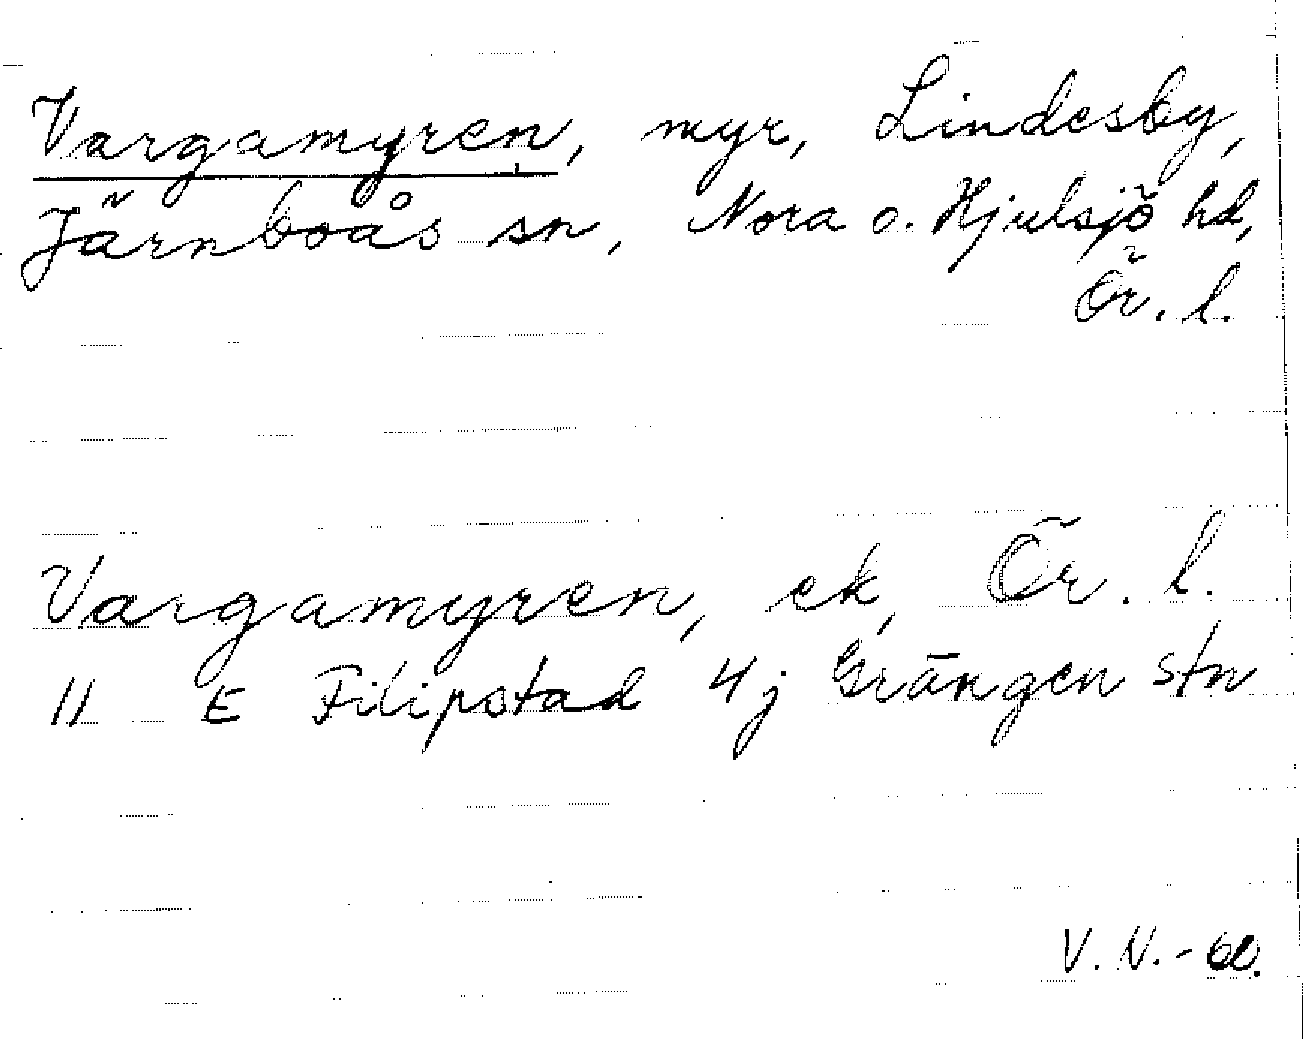 Vargamyren, myr, Lindesby,
Järnboås sn, Nora o. Hjulsjö hd,
Ör. l.
Vargamyren, ek, Ör. l.
11 E Filipstad 4j Grängen stn
V. N. - 60.